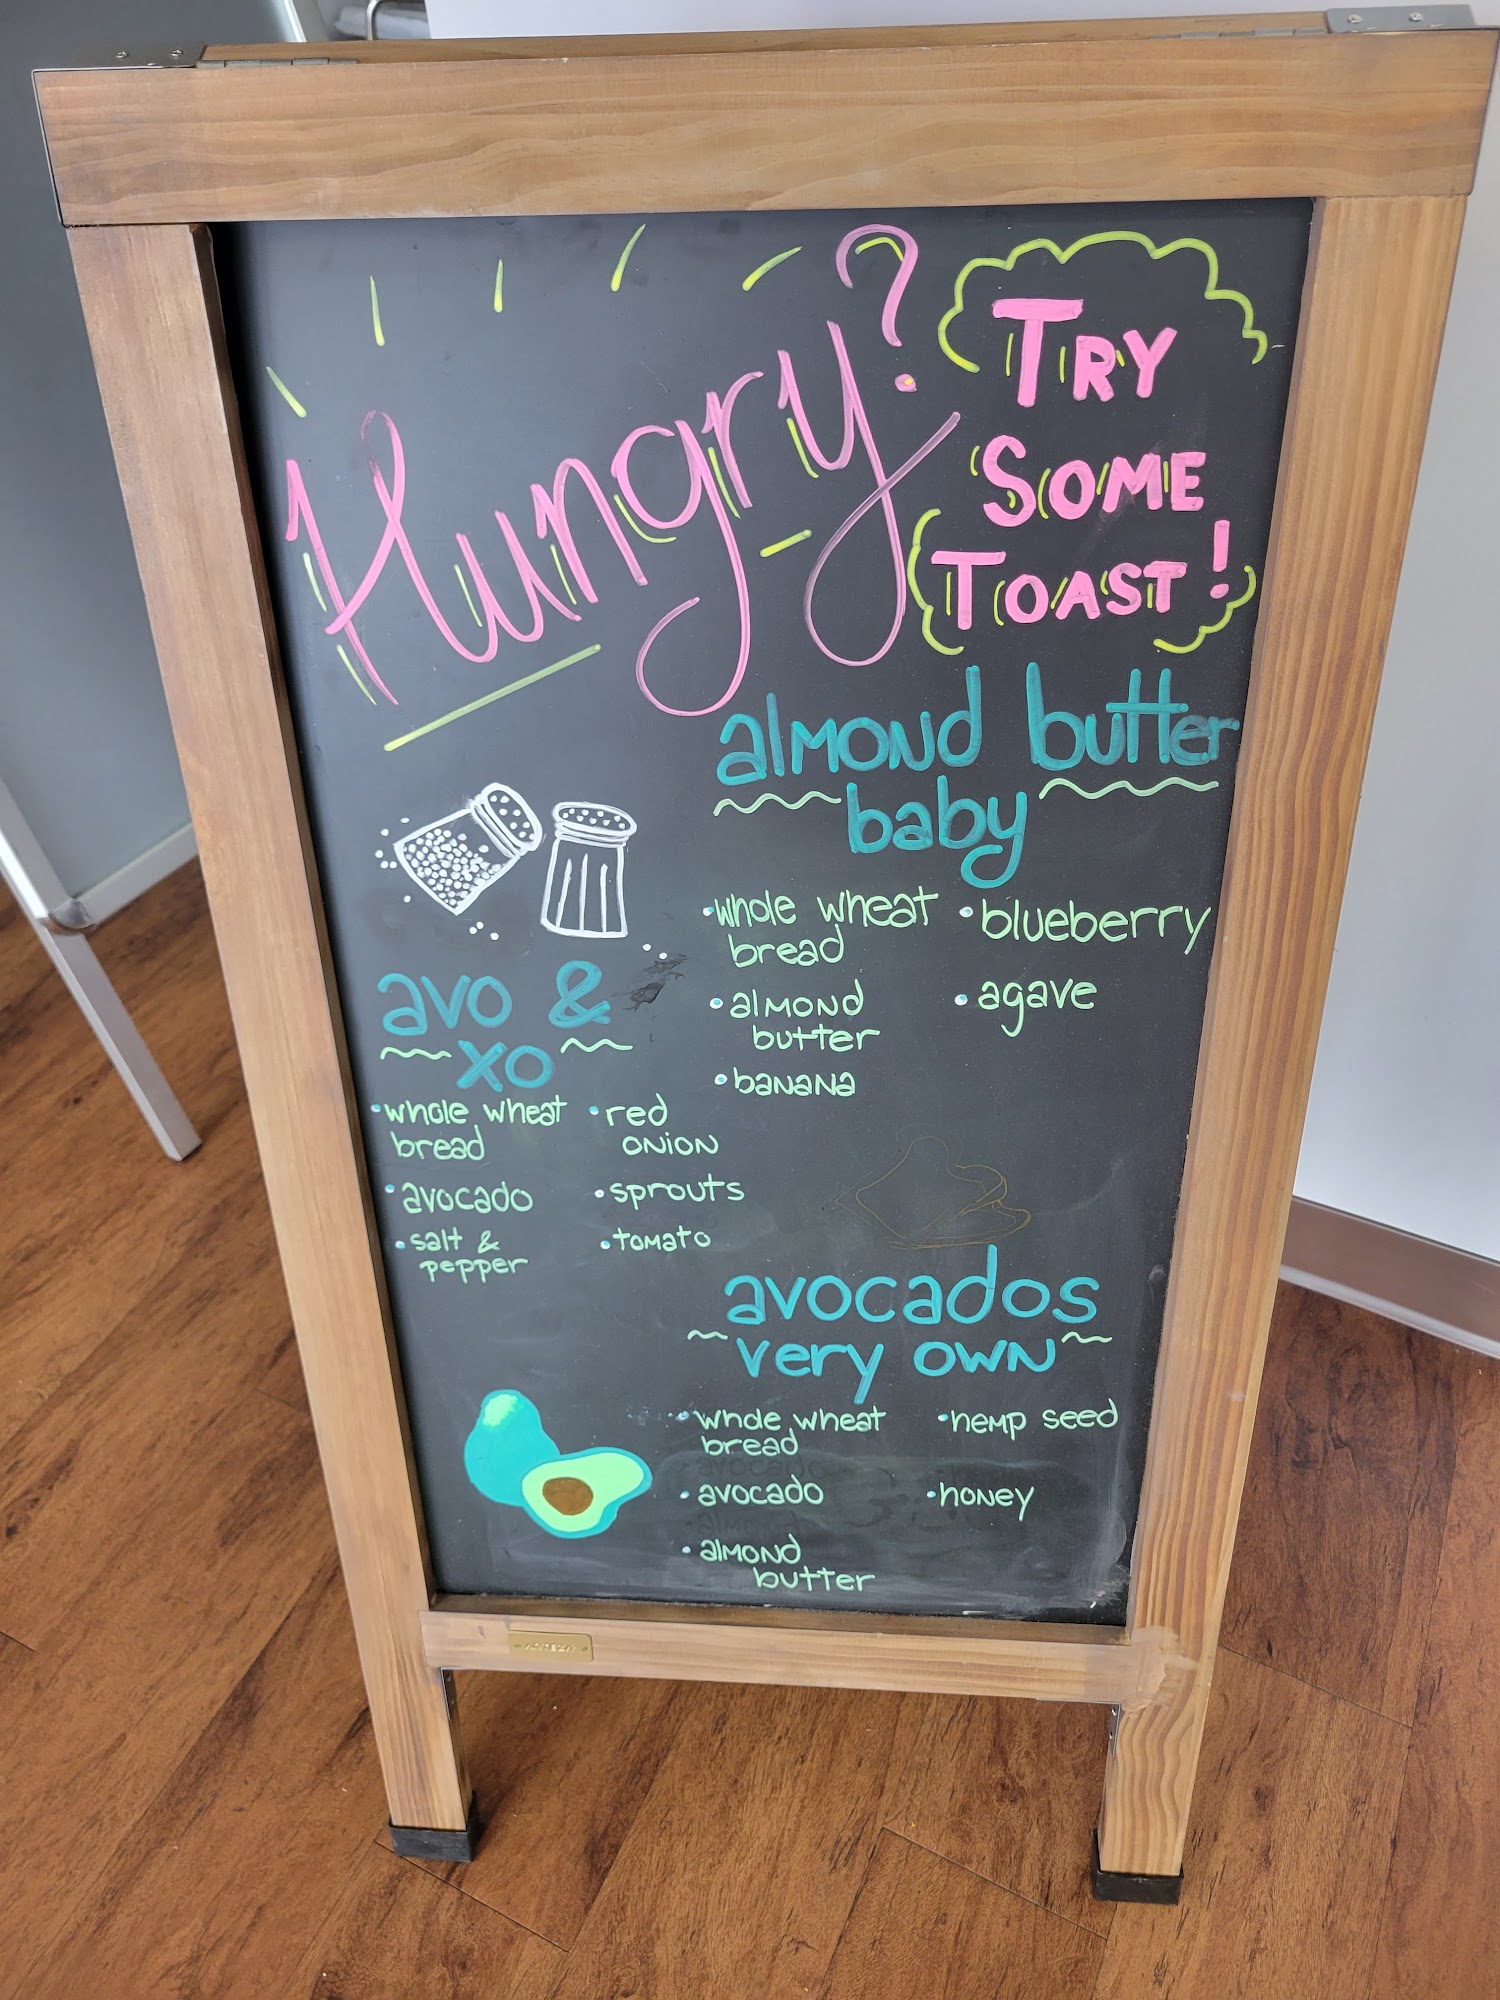 Hungry?
TRY
SOME
TOAST!
almond butter
baby
•whole wheat
bread
•almond
butter
•banana
•blueberry
•agave
avo &
xo
•whole wheat
bread
•avocado
•salt &
pepper
•red
onion
•sprouts
•tomato
avocados
very own
•whole wheat
bread
•avocado
•almond
butter
•hemp seed
•honey
ARTEZA